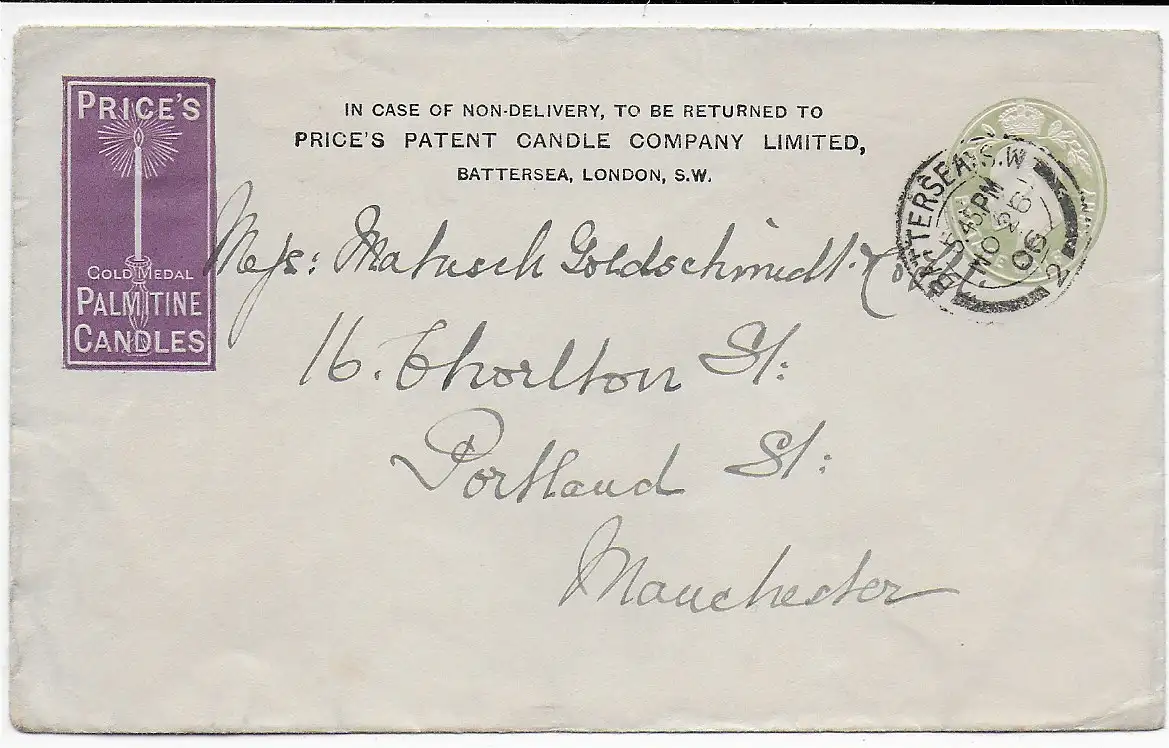 PRICE'S
GOLD MEDAL
PALMITINE
CANDLES
IN CASE OF NON-DELIVERY, TO BE RETURNED TO
PRICE'S PATENT CANDLE COMPANY LIMITED,
BATTERSEA, LONDON, S.W.
BATTERSEA. S.W
5.45PM
NO 26
06
2
Mess: Matusch Goldschmidt & Co
16. Chorlton St:
Portland St:
Manchester